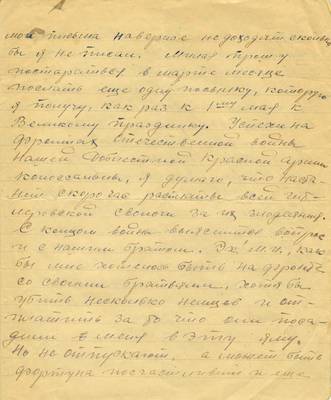 мои письма наверное не доходят сколько
бы я не писал. Милая прошу
постарайся в марте месяце
послать еще одну посылку, которую
я получу, как раз к 1му мая к
Великому празднику. Успехи на
фронтах отечественной войны
нашей доблестной красной армии
колоссальны, я думаю, что наста-
нет скоро час расплаты всей гит-
леровской сволочи за их злодеяния.
С концом войны выяснится вопрос
и с нашим братом. Эх! М.И., как
бы мне хотелось быть на фронте
со своими братьями, хотя бы
убить несколько немцев и от-
платить за то что они поса-
дили меня в эту яму.
Но не отпускают, а может быть
фортуна посчастливит и еще